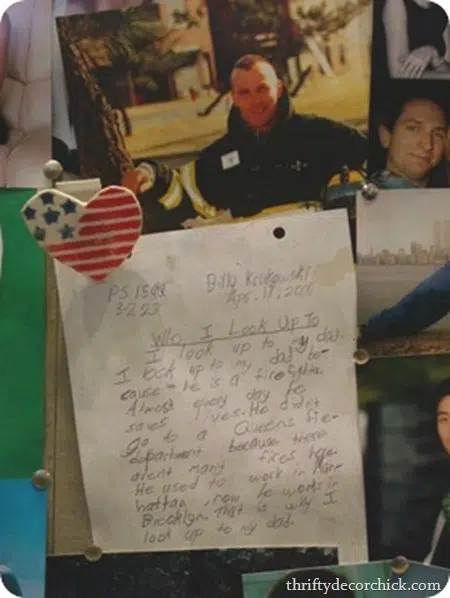 Billy
P.S.
Apr. 11, 200
3-223
Who I Look Up To
I look up to my dad.
I look up to my dad be-
cause he is a firefighter.
Almost every day he
saves lives. He didn't
go to a Queens fie-
department because there
arent many fires here.
He used to work in Man-
hattan, now he works in
Brooklyn. That is why I
look up to my dad.
thriftydecorchick.com